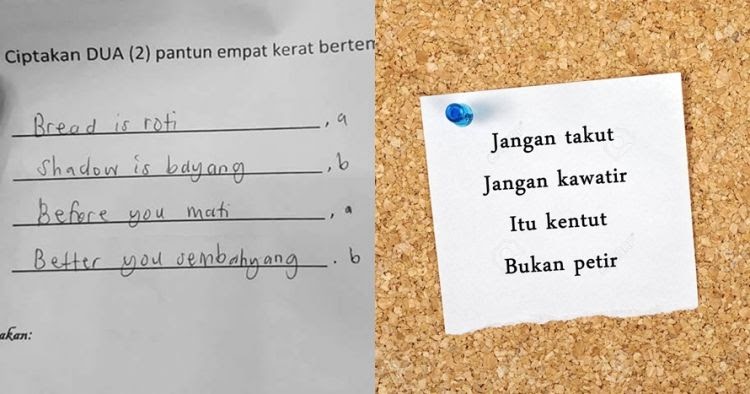 Ciptakan DUA (2) pantun empat kerat
Bread is roti , a
Shadow is bayang , b
Before you mati , a
Better you sembahyang . b
akan:
Jangan takut
Jangan kawatir
Itu kentut
Bukan petir